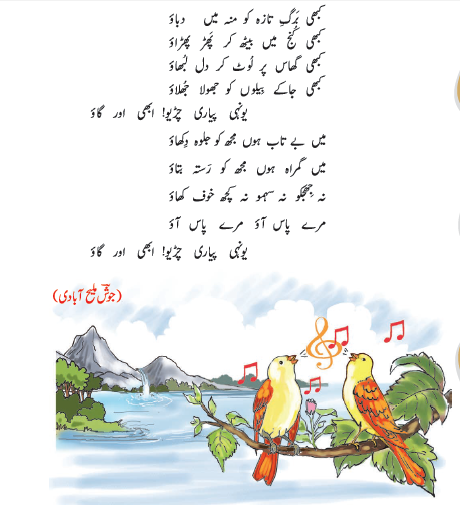 کبھی بَرگِ تازہ کو منہ میں دباؤ
کبھی کُنج میں بیٹھ کر پَھڑ پھڑاؤ
کبھی گھاس پر لَوٹ کر دل لُبھاؤ
کبھی جاکے بیلوں کو جھولا جُھلاؤ
یونہی پیاری چڑیو! ابھی اور گاؤ
میں بے تاب ہوں مجھ کو جلوہ دِکھاؤ
میں گمراہ ہوں مجھ کو رَستہ بتاؤ
نہ جِھجکو نہ سہمو نہ کچھ خوف کھاؤ
مرے پاس آؤ مرے پاس آؤ
یونہی پیاری چڑیو! ابھی اور گاؤ
(جوشؔ ملیح آبادی)